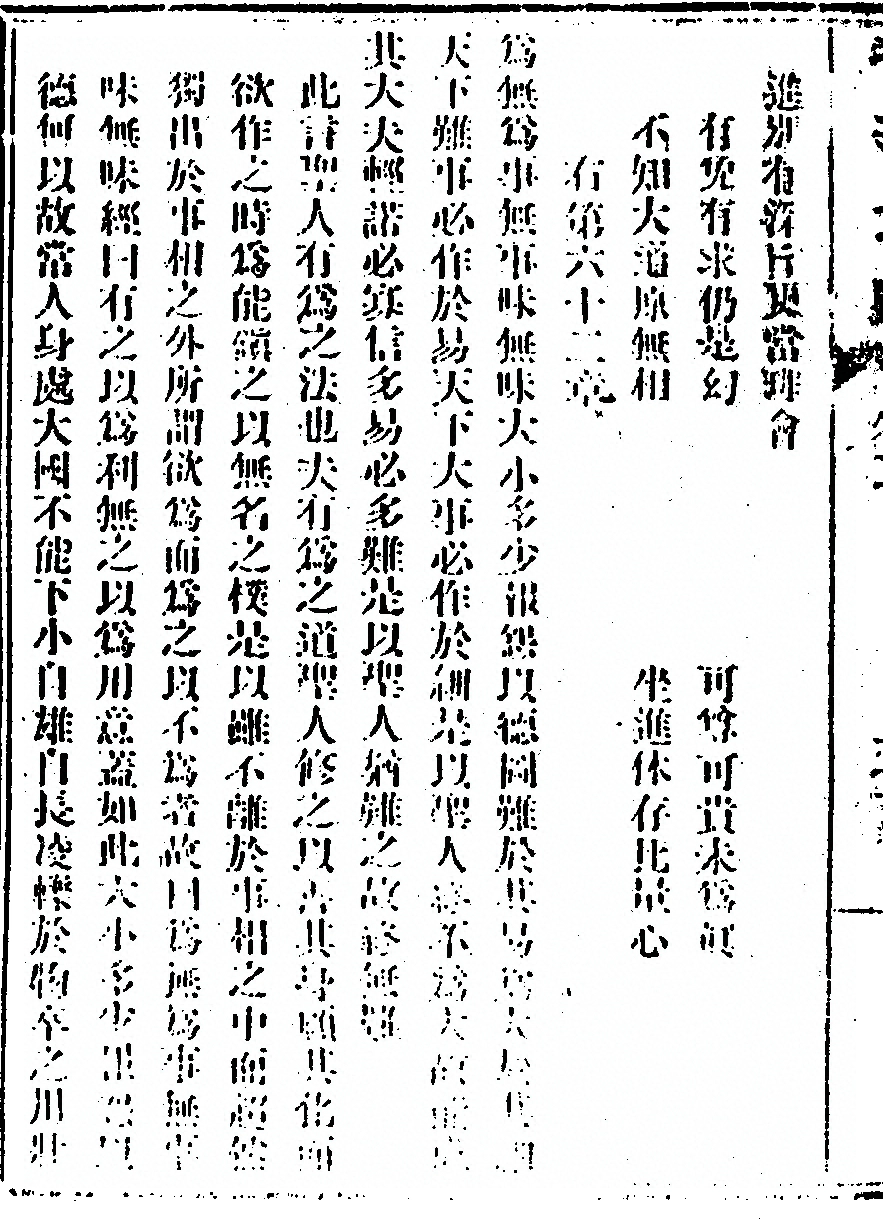 進別有深旨更當理會
有免有求仍是幻　可尊可貴未爲眞
不知大道原無相　坐進休存比量心
右第六十二章
爲無爲事無事味無味大小多少報怨以德圖難於其易爲大於其細
天下難事必作於易天下大事必作於細是以聖人終不爲大故能成
其大夫輕諾必寡信多易必多難是以聖人猶難之故終無難
此言聖人有爲之法也夫有爲之道聖人修之以善其身顯其化而
欲作之時爲能鎮之以無名之樸是以雖不離於事相之中而超然
獨出於事相之外所謂欲爲而爲之以不爲者故曰爲無爲事無事
味無味經曰有之以爲利無之以爲用意蓋如此大小多少報怨以
德何以故當人身處大國不能下小自雄自長凌轢於物卒之用壯